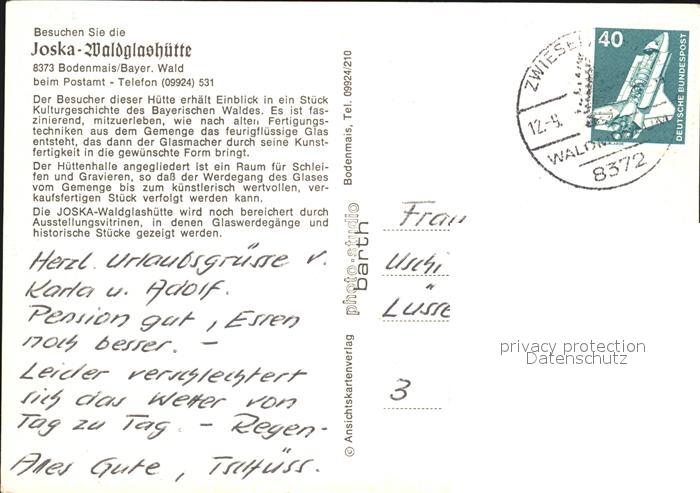 Besuchen Sie die
Joska-Waldglashütte
8373 Bodenmais/Bayer. Wald
beim Postamt - Telefon (09924) 531
Der Besucher dieser Hütte erhält Einblick in ein Stück
Kulturgeschichte des Bayerischen Waldes. Es ist fas-
zinierend, mitzuerleben, wie nach alten Fertigungs-
techniken aus dem Gemenge das feurigflüssige Glas
entsteht, das dann der Glasmacher durch seine Kunst-
fertigkeit in die gewünschte Form bringt.
Der Hüttenhalle angegliedert ist ein Raum für Schlei-
fen und Gravieren, so daß der Werdegang des Glases
vom Gemenge bis zum künstlerisch wertvollen, ver-
kaufsfertigen Stück verfolgt werden kann.
Die JOSKA-Waldglashütte wird noch bereichert durch
Ausstellungsvitrinen, in denen Glaswerdegänge und
historische Stücke gezeigt werden.
Herzl. Urlaubsgrüsse v.
Karla u. Adolf.
Pension gut, Essen
noch besser. -
Leider verschlechtert
sich das Wetter von
Tag zu Tag. - Regen -
Alles Gute, Tschüss.
© Ansichtskartenverlag photo-studio barth Bodenmais, Tel. 09924/210
ZWIESEL
12.-9.
8372
40
DEUTSCHE BUNDESPOST
Frau
Uschi
Lüsse
3
privacy protection
Datenschutz